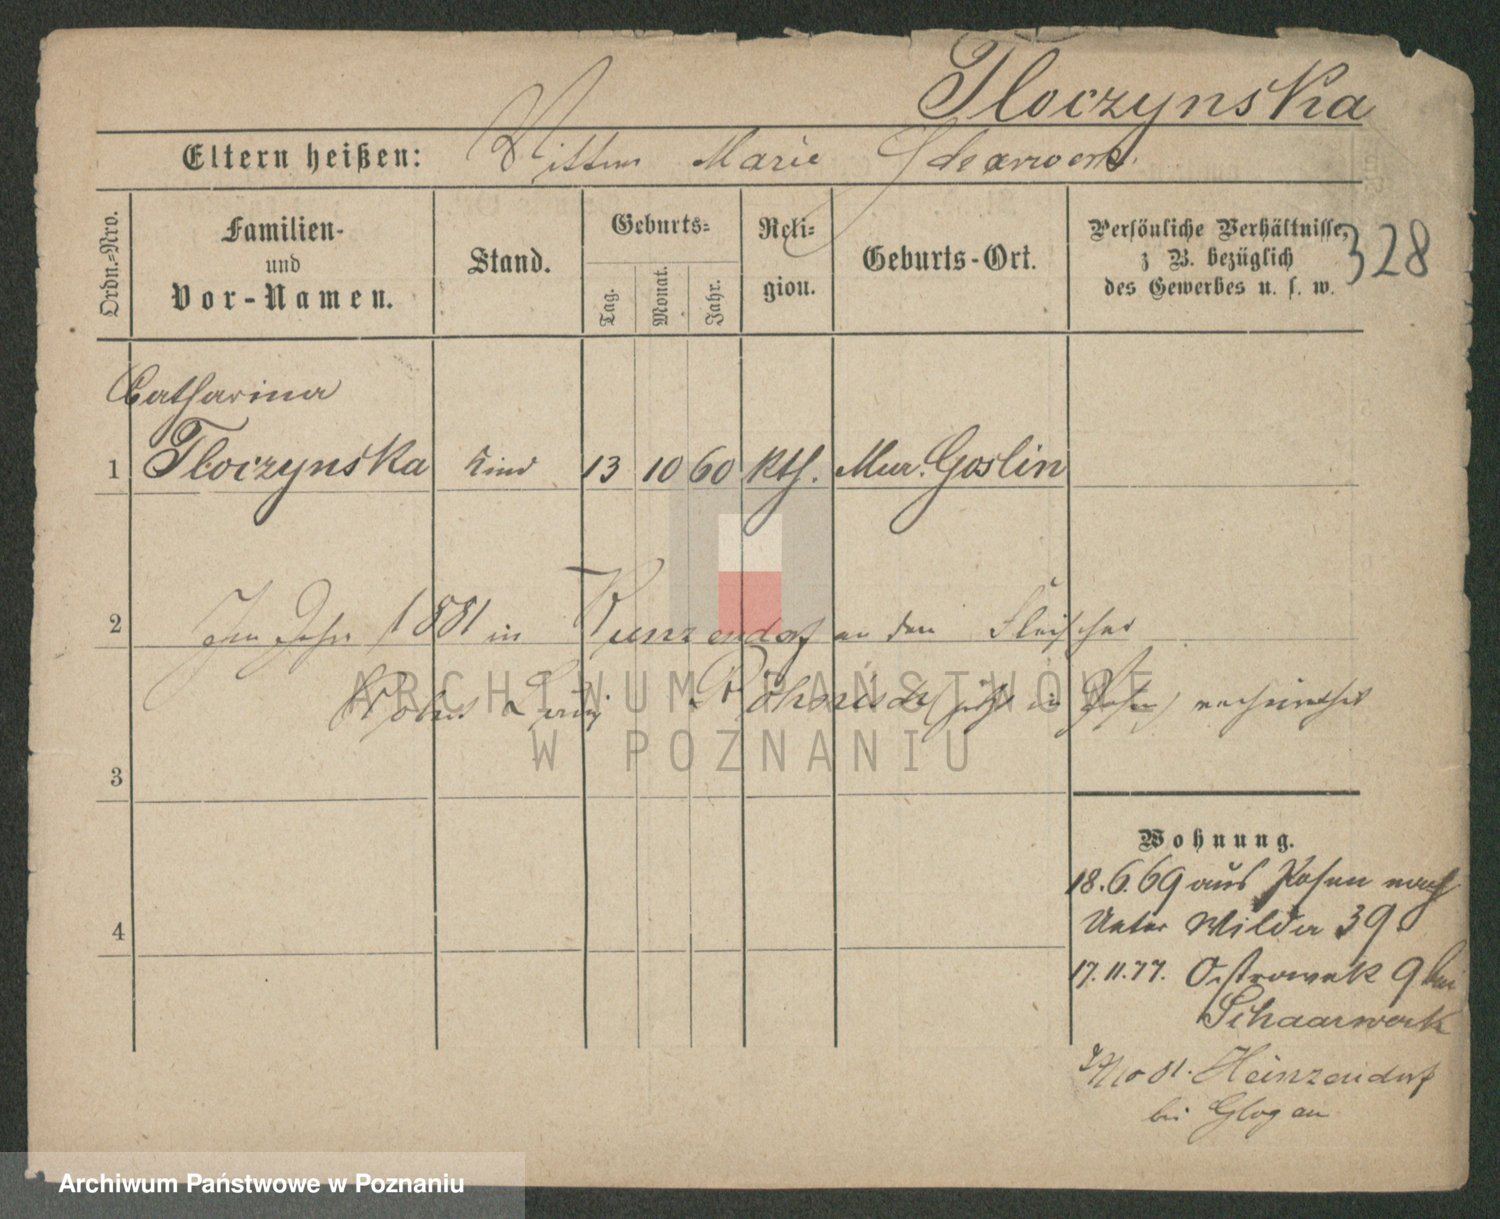 Tloczynska
Eltern heißen: Marie Schaarwerk.
328
Ordn.-Nro.
Familien-
und
Vor-Namen.
Stand.
Geburts-
Tag.
Monat.
Jahr.
Reli-
gion.
Geburts-Ort.
Persönliche Verhältnisse,
z B. bezüglich
des Gewerbes u. s. w.
Catharina
1 Tloczynska Kind 13 10 60 kth. Mur. Goslin
2 Im Jahre 1881 in Kunzendorf an den Fleischer
in Posen verheirathet
3
4
Wohnung.
18.6.69 aus Posen nach
Unter Wilda 39
17.11.77. Ostrowek 9 bei
Schaarwerk
81. Heinzendorf
bei Glogau
ARCHIWUM PAŃSTWOWE
W POZNANIU
Archiwum Państwowe w Poznaniu